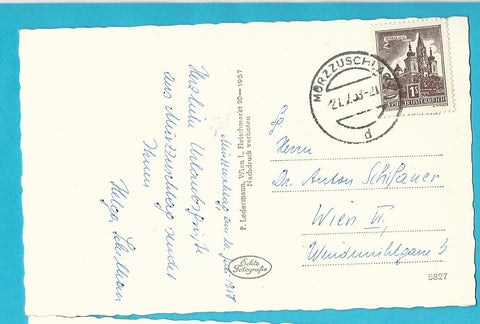 Mürzzuschlag, den 20. Juli 1958
Herzliche Urlaubsgrüße
aus Mürzzuschlag sendet
Ihnen
Helga
P. Ledermann, Wien I., Fleischmarkt 20 — 1957
Nachdruck verboten
Echte
Fotografie
MÜRZZUSCHLAG
21.7.58
d
1S
REPUBLIK ÖSTERREICH
Herrn
Dr. Anton
Wien VI,
Windmühlgasse 3
5827